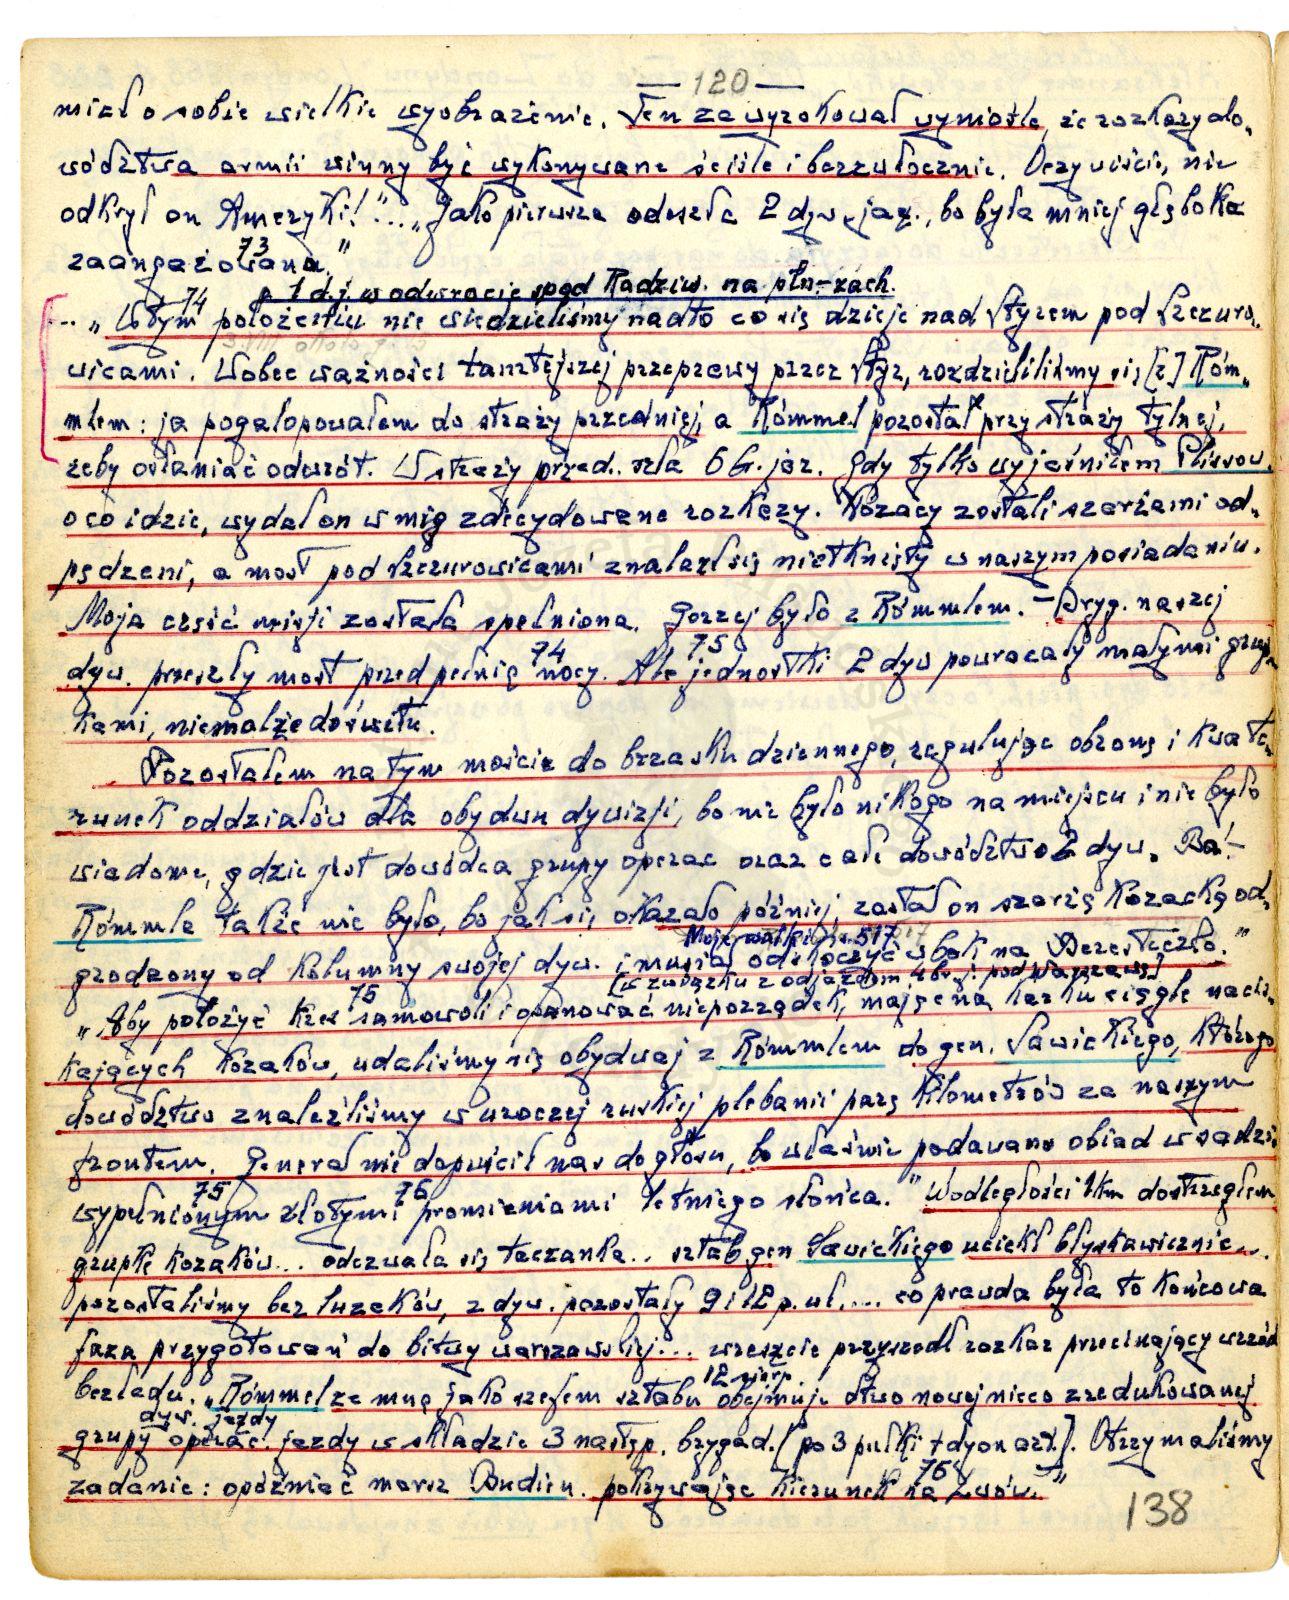 — 120 —
miał o sobie wielkie wyobrażenie. Ten zawyrokował wyniośle, że rozkazy do-
wództwa armii winny być wykonywane ściśle i bezzwłocznie. Oczywiście, nie
odkrył on Ameryki!"... „Jako pierwsza odeszła 2 dyw. jaz., bo była mniej głęboko
zaangażowana." 73
1 d.j. w odwrocie spod Radziw. na płn.-zach.
... „W tym 74 położeniu nie wiedzieliśmy nadto co się dzieje nad Styrem pod Szczuro-
wicami. Wobec ważności tamtejszej przeprawy przez Styr, rozdzieliliśmy się [z] Róm-
mlem: ja pogalopowałem do straży przedniej, a Rómmel pozostał przy straży tylnej,
żeby osłaniać odwrót. W straży przed. szła 6 b. jaz. Gdy tylko wyjaśniłem Plissow.
o co idzie, wydał on w mig zdecydowane rozkazy. Kozacy zostali szarżami od-
pędzeni, a most pod Szczurowicami znalazł się nietknięty w naszym posiadaniu.
Moja część misji została spełniona. Gorzej było z Rómmlem. – Bryg. naszej
dyw. przeszły most przed pełnią nocy. 74 Ale 75 jednostki 2 dyw powracały małymi grup-
kami, niemalże do świtu.
Pozostałem na tym moście do brzasku dziennego, regulując obronę i kwate-
runek oddziałów dla obydwu dywizji, bo nie było nikogo na miejscu i nie było
wiadome, gdzie jest dowódca grupy operac oraz całe dowództwo 2 dyw. Ba! –
Rómmla także nie było, bo jak się okazało później, został on szarżą kozacką od-
grodzony od kolumny swojej dyw. i musiał odskoczyć w bok na Beresteczko."
Moje walki s. 517
[w związku z odjazdem 4 br. j. pod Warszawę]
„Aby położyć kres 75 samowoli i opanować nieporządek, mając na karku ciągle naci-
kających kozaków, udaliśmy się obydwaj z Rómmlem do gen. Sawickiego, którego
dowództwo znaleźliśmy w uroczej ruskiej plebanii parę kilometrów za naszym
frontem. Generał nie dopuścił nas do głosu, bo właśnie podawano obiad w sadzie
wypełnionym 75 złotymi 76 promieniami letniego słońca." W odległości 1 km dostrzegłem
grupkę kozaków... odezwała się taczanka... sztab gen Sawickiego uciekł błyskawicznie...
pozostaliśmy bez luzaków, z dyw. pozostały 9 i 12 p. uł.... co prawda była to końcowa
faza przygotowań do bitwy warszawskiej... wreszcie przyszedł rozkaz przecinający wrzód
bezładu. „Rómmel ze mną jako szefem sztabu 12 sierp. obejmuje dtwo nowej nieco zredukowanej
dyw. jazdy
grupy operac. jazdy w składzie 3 następ. brygad. [po 3 pułki + dyon art.]. Otrzymaliśmy
zadanie: opóźniać marsz Budien. pokrywając kierunek na Lwów." 76
138